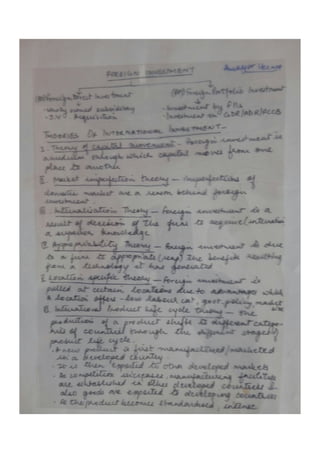 FOREIGN INVESTMENT
Foreign Direct Investment
Foreign Portfolio Investment
- wholly owned subsidiary
- Investment by FIIs
- J.V. Acquisition
- Investment in GDR/ADR/FCCB
THEORIES OF INTERNATIONAL INVESTMENT -
Theory of capital movement - Foreign investment is
a medium through which capital moves from one
place to another
Market imperfection theory - imperfections of
domestic market are a reason behind foreign
investment.
Internalisation Theory - Foreign investment is a
result of decision of the firm to acquire/
a superior knowledge
Appropriability Theory - Foreign investment is due
to a firm to appropriate (reap) the benefits resulting
from a technology it has generated
Location specific theory - Foreign investment is
pulled at certain locations due to advantages which
a location offers - low labour cost, govt. policy, market size
International Product life cycle theory - The
production of a product shifts to different categories
of countries through the different stages of
product life cycle.
· A new product is first manufactured/marketed
in a developed country.
· It is then exported to other developed markets
· As competition increases, manufacturing facilities
are established in other developed countries &
also goods are exported to developing countries
· As the product becomes standardised, intense